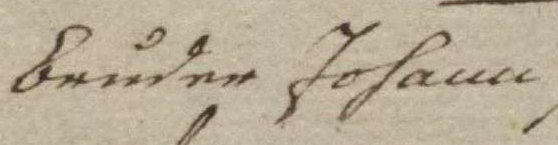 Bruder Johann,